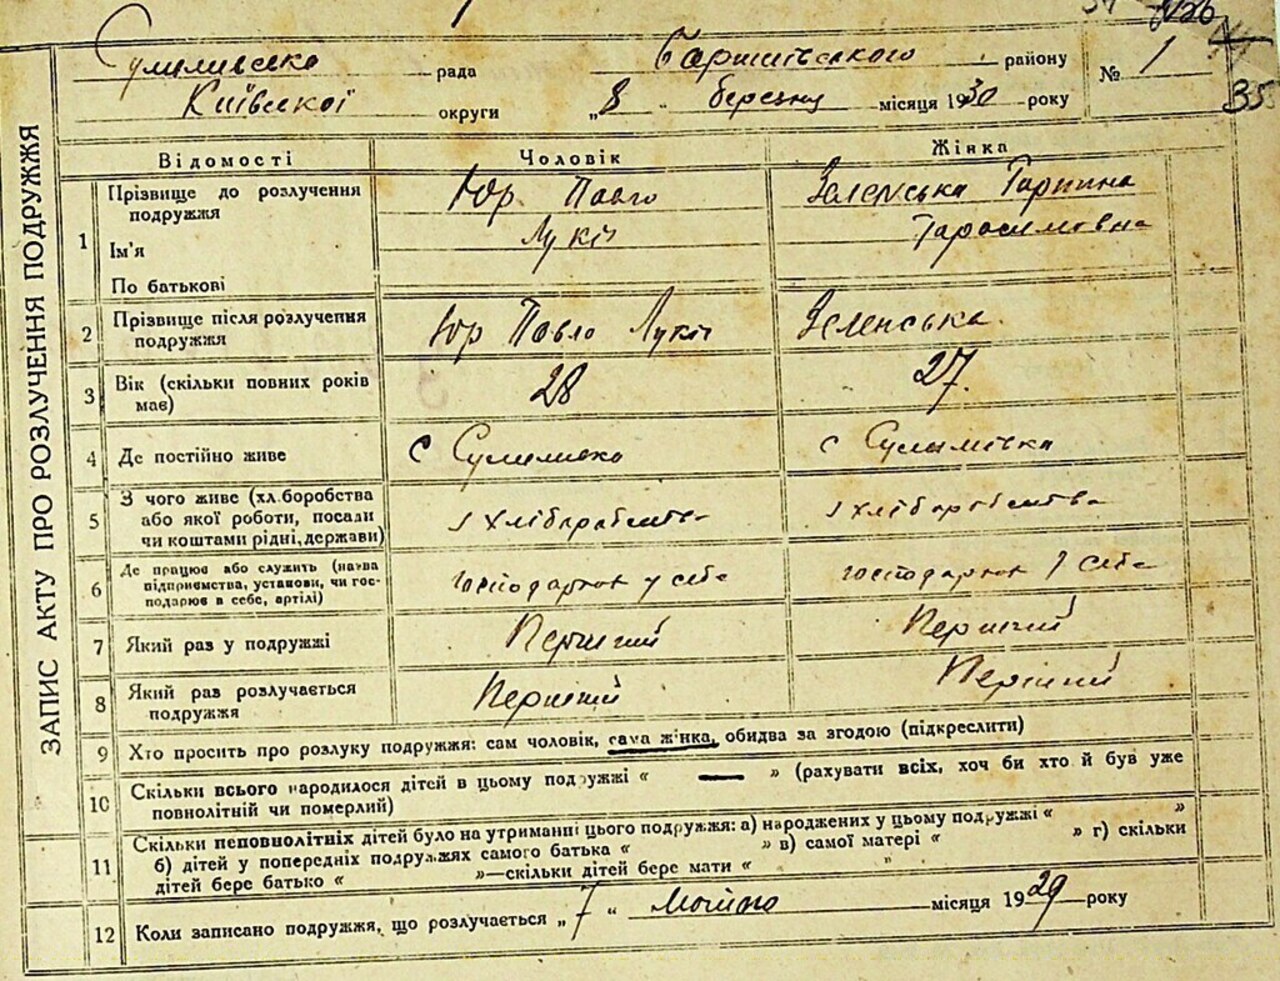 №26
35
Сулимівська рада Баришівського району № 1
Київської округи „8“ березня місяця 1930 року
ЗАПИС АКТУ ПРО РОЗЛУЧЕННЯ ПОДРУЖЖЯ
Відомості Чоловік Жінка
1 Прізвище до розлучення Юр Павло Зеленська Гарпина
подружжя Лукіч Гарасимовна
Ім'я
По батькові
2 Прізвище після розлучення Юр Павло Лукіч Зеленська
подружжя
3 Вік (скільки повних років 28 27
має)
4 Де постійно живе с Сулимівка с Сулимівка
5 З чого живе (хл.боробства з хліборобства з хліборобства
або якої роботи, посади
чи коштами рідні, держави)
6 Де працює або служить (назва господарює у себе господарює у себе
підприємства, установи, чи гос-
подарює в себе, артілі)
7 Який раз у подружжі Перший Перший
8 Який раз розлучається Перший Перший
подружжя
9 Хто просить про розлуку подружжя: сам чоловік, сама жінка, обидва за згодою (підкреслити)
10 Скільки всього народилося дітей в цьому подружжі « — » (рахувати всіх, хоч би хто й був уже
повнолітній чи померлий)
11 Скільки неповнолітніх дітей було на утриманні цього подружжя: а) народжених у цьому подружжі « »
б) дітей у попередніх подружжях самого батька « » в) самої матері « » г) скільки
дітей бере батько « »—скільки дітей бере мати « »
12 Коли записано подружжя, що розлучається „7“ лютого місяця 1929 року